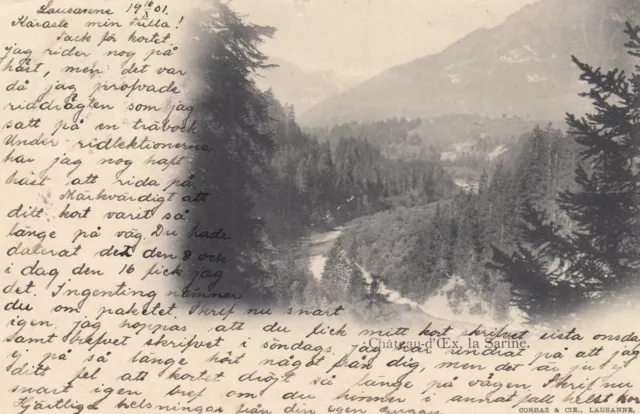 Lausanne 19 16/6 01.
Käraste min Tulla!
Tack för kortet
jag rider nog på
häst, men det var
då jag profvade
riddrägten som jag
satt på en träbock
Under ridlektionerna
har jag nog haft
häst att rida på.
Märkvärdigt att
ditt kort varit så
länge på väg. Du hade
daterat det den 8 och
i dag den 16 fick jag
det. Ingenting nämner
du om paketet. Skrif nu snart
igen, jag hoppas att du fick mitt kort skrifvet sista onsdag
samt brefvet skrifvet i söndags. Jag har undrat på att jag
ej på så länge hört något från dig, men det är ju ej
ditt fel att kortet dröjt så länge på vägen. Skrif nu
snart igen bref om du hinner i annat fall helst kort
Hjärtliga helsningar från din egen
Château-d'Œx, la Sarine.
CORBAZ & CIE., LAUSANNE.